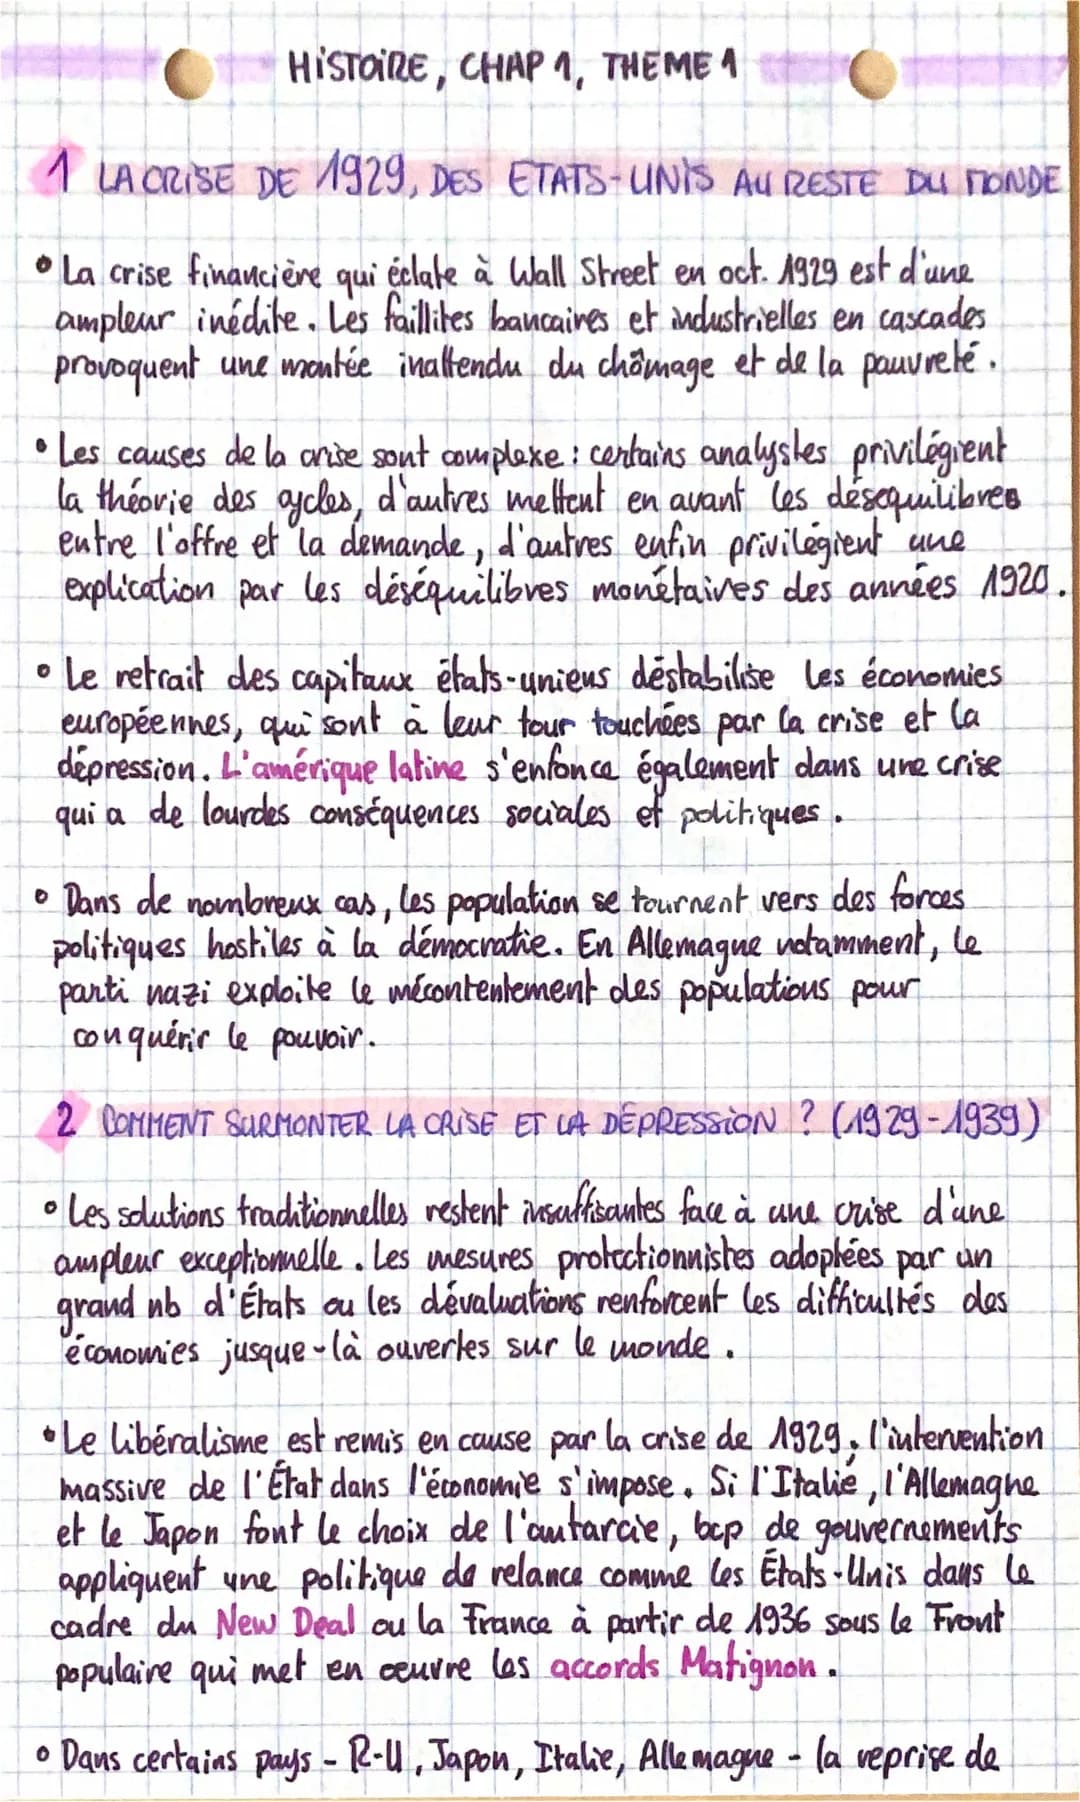 HISTOIRE, CHAP 1, THEME 1
1 LA CRISE DE 1929, DES ETATS-UNIS AU RESTE DU MONDE
• La crise financière qui éclate à Wall Street en oct. 1929 est d'une
ampleur inédite. Les faillites bancaires et industrielles en cascades
provoquent une montée inattendu du chômage et de la pauvreté.
• Les causes de la crise sont complexe : certains analystes privilégient
la théorie des cycles, d'autres mettent en avant les désequilibres
entre l'offre et la demande, d'autres enfin privilégient une
explication par les déséquilibres monétaires des années 1920.
• Le retrait des capitaux états-uniens déstabilise les économies
européennes, qui sont à leur tour touchées par la crise et la
dépression. L'amérique latine s'enfonce également dans une crise
qui a de lourdes conséquences sociales et politiques.
• Dans de nombreux cas, les population se tournent vers des forces
politiques hostiles à la démocratie. En Allemagne notamment, le
parti nazi exploite le mécontentement des populations pour
conquérir le pouvoir.
2 COMMENT SURMONTER LA CRISE ET LA DÉPRESSION ? (1929-1939)
• Les solutions traditionnelles restent insuffisantes face à une crise d'une
ampleur exceptionnelle. Les mesures protectionnistes adoptées par un
grand nb d'États ou les dévaluations renforcent les difficultés des
économies jusque-là ouvertes sur le monde.
• Le libéralisme est remis en cause par la crise de 1929, l'intervention
massive de l'État dans l'économie s'impose. Si l'Italie, l'Allemagne
et le Japon font le choix de l'autarcie, bcp de gouvernements
appliquent une politique de relance comme les États-Unis dans le
cadre du New Deal ou la France à partir de 1936 sous le Front
populaire qui met en œuvre les accords Matignon.
• Dans certains pays - R-U, Japon, Italie, Allemagne - la reprise de